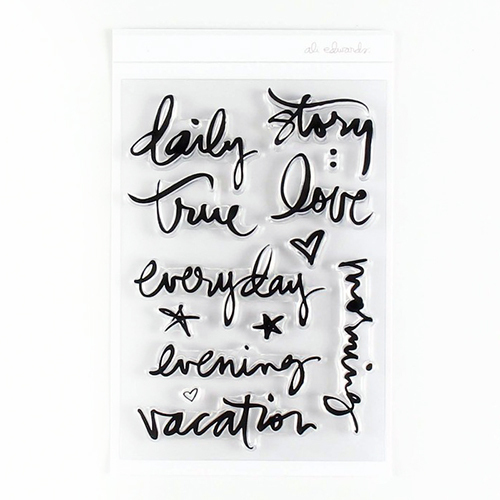 ali edwards
daily story
:
true love
everyday
morning
evening
vacation